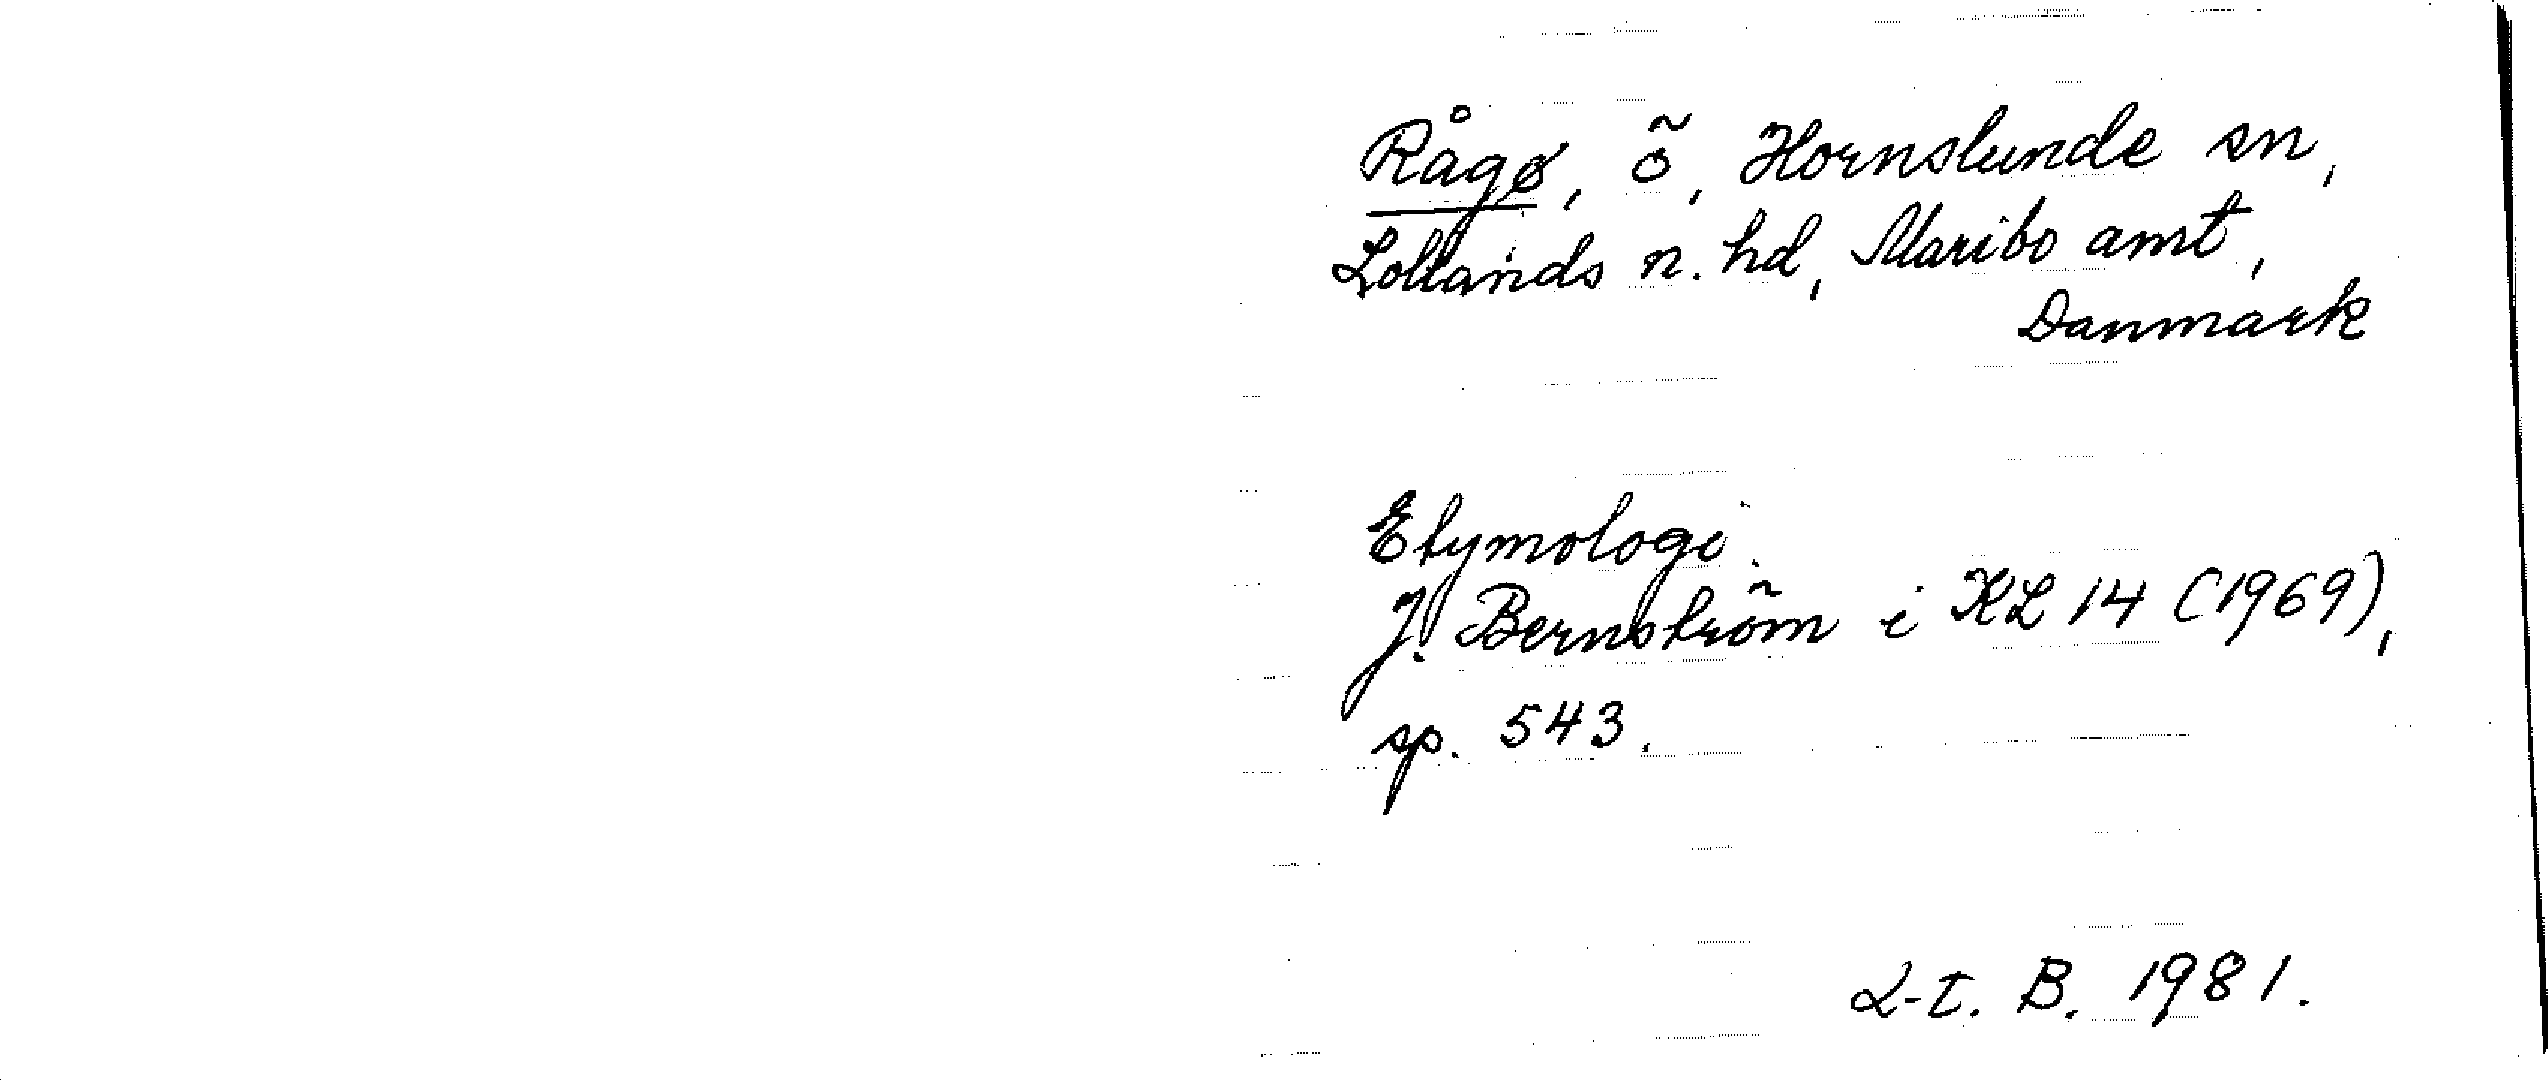 Rågø, ö, Hornslunde sn,
Lollands n. hd, Maribo amt,
Danmark
Etymologi.
J. Bernström i KL 14 (1969),
sp. 543.
L-t. B. 1981.